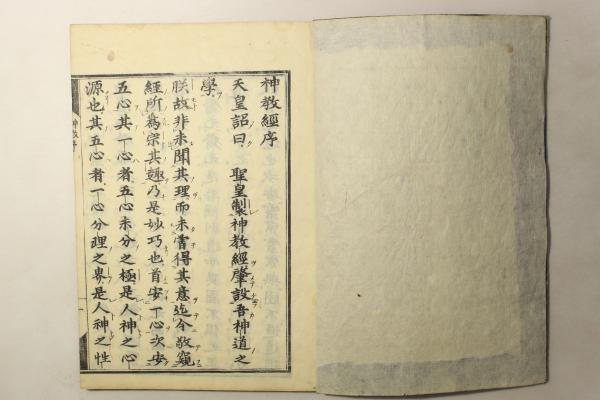 神教經序
天皇詔曰聖皇製神教經肇設吾神道之
學
朕故非未聞其理而未嘗得其意迄今敬窺
經所爲宗其趣乃是妙巧也首安一心次安
五心其一心者五心未分之極是人神之心
源也其五心者一心分理之界是人神之性
神教序